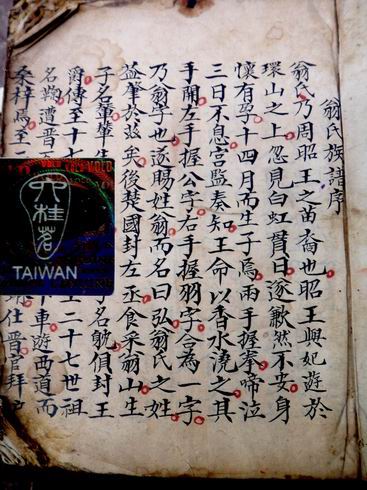 翁氏族譜序
翁氏乃周昭王之苗裔也昭王與妃遊於
環山之上忽見白虹貫日遂歉然不安身
懷有孕十四月而生子焉兩手握拳啼泣
三日不息宮監奏知王命以香水澆之其
手開左手握公字右手握羽字合為一字
乃翁字也遂賜姓翁而名曰弘翁氏之姓
益肇於茲矣後楚國封左丞食采翁山生
子名生名封王
爵傳至十七二十七世祖
名遭晋車遊西道而
桑梓焉至二仕晋官拜
六桂茗
TAIWAN